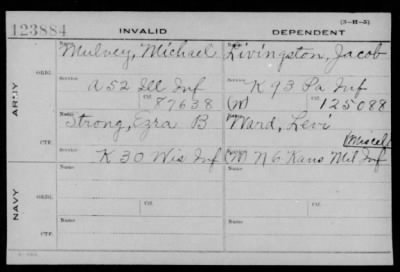 123884
INVALID
DEPENDENT
(3-H-5)
ARMY
ORIG.
Name
Mulvey, Michael
Service
A 52 Ill Inf
Ctf.
87638
Livingston, Jacob
Service
K 93 Pa Inf
(W)
Ctf.
125088
CTF.
Name
Strong, Ezra B
Service
K 30 Wis Inf
Name
Ward, Levi
(Miscel)
Service
(M) N 6" Kans Mil Inf
NAVY
ORIG.
Name
Ctf.
Name
Ctf.
CTF.
Name
Name